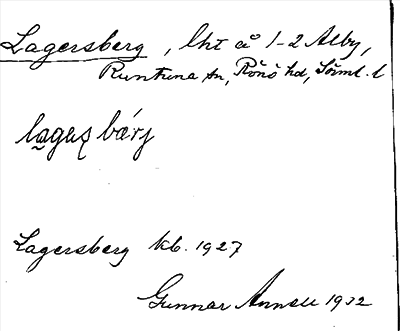 Lagersberg, lht å 1-2 Alby,
Runtuna sn, Rönö hd, Sörml. l
Lagersberg kb. 1927
Gunnar 1932